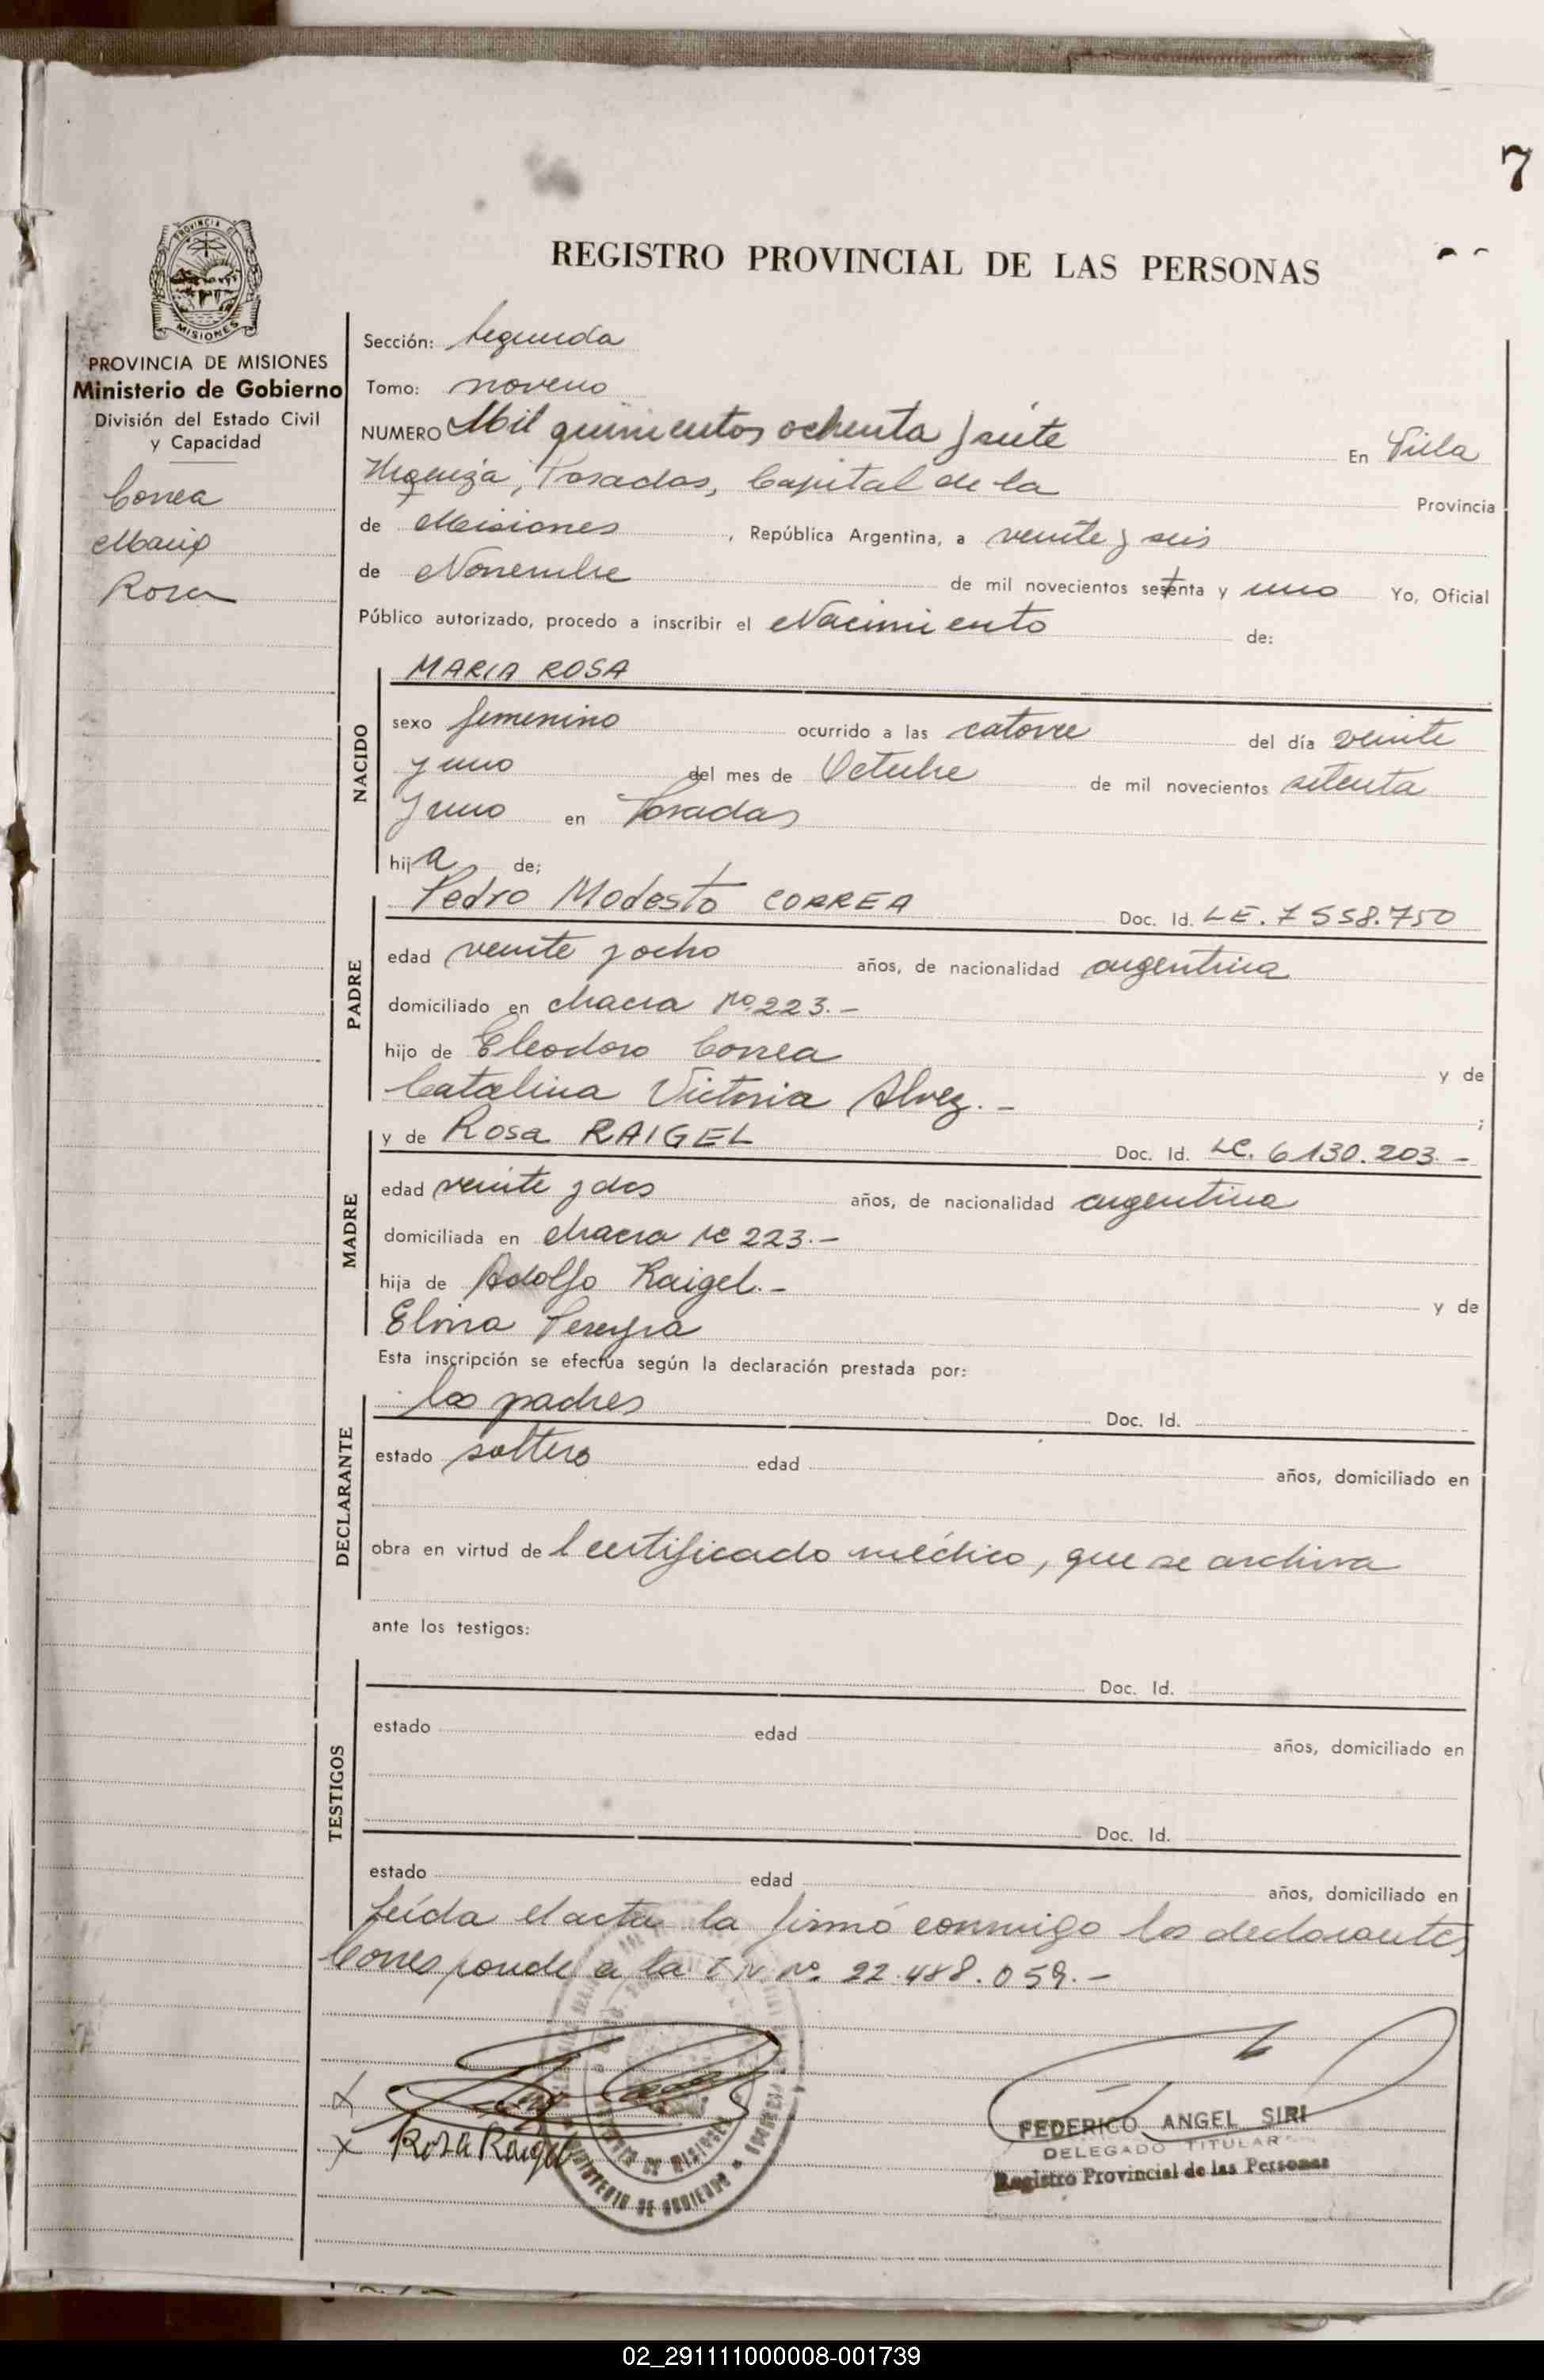 7
REGISTRO PROVINCIAL DE LAS PERSONAS
PROVINCIA DE
MISIONES
PROVINCIA DE MISIONES
Ministerio de Gobierno
División del Estado Civil
y Capacidad
Correa
Maria
Rosa
Sección: Segunda
Tomo: noveno
NUMERO Mil quinientos ochenta y siete En Villa
Urquiza, Posadas, Capital de la Provincia
de Misiones, República Argentina, a veinte y seis
de Noviembre de mil novecientos setenta y uno Yo, Oficial
Público autorizado, procedo a inscribir el Nacimiento de:
NACIDO
MARIA ROSA
sexo femenino ocurrido a las catorce del día veinte
y uno del mes de Octubre de mil novecientos setenta
y uno en Posadas
hija de;
PADRE
Pedro Modesto CORREA Doc. Id. LE. 7558.750
edad veinte y ocho años, de nacionalidad argentina
domiciliado en chacra No. 223.-
hijo de Eleodoro Correa y de
Catalina Victoria Alvez.- ;
MADRE
y de Rosa RAIGEL Doc. Id. LC. 6130.203.-
edad veinte y dos años, de nacionalidad argentina
domiciliada en chacra No 223.-
hija de Adolfo Raigel.- y de
Elvira Pereyra
Esta inscripción se efectúa según la declaración prestada por:
DECLARANTE
los padres Doc. Id.
estado soltero edad años, domiciliado en
obra en virtud de l certificado médico, que se archiva
ante los testigos:
TESTIGOS
Doc. Id.
estado edad años, domiciliado en
Doc. Id.
estado edad años, domiciliado en
Leída el acta la firmó conmigo los declarantes
Corresponde a la No. 22.488.059.-
x
x Rosa Raigel
MINISTERIO DE GOBIERNO
FEDERICO ANGEL SIRI
DELEGADO TITULAR
Registro Provincial de las Personas
02_291111000008-001739